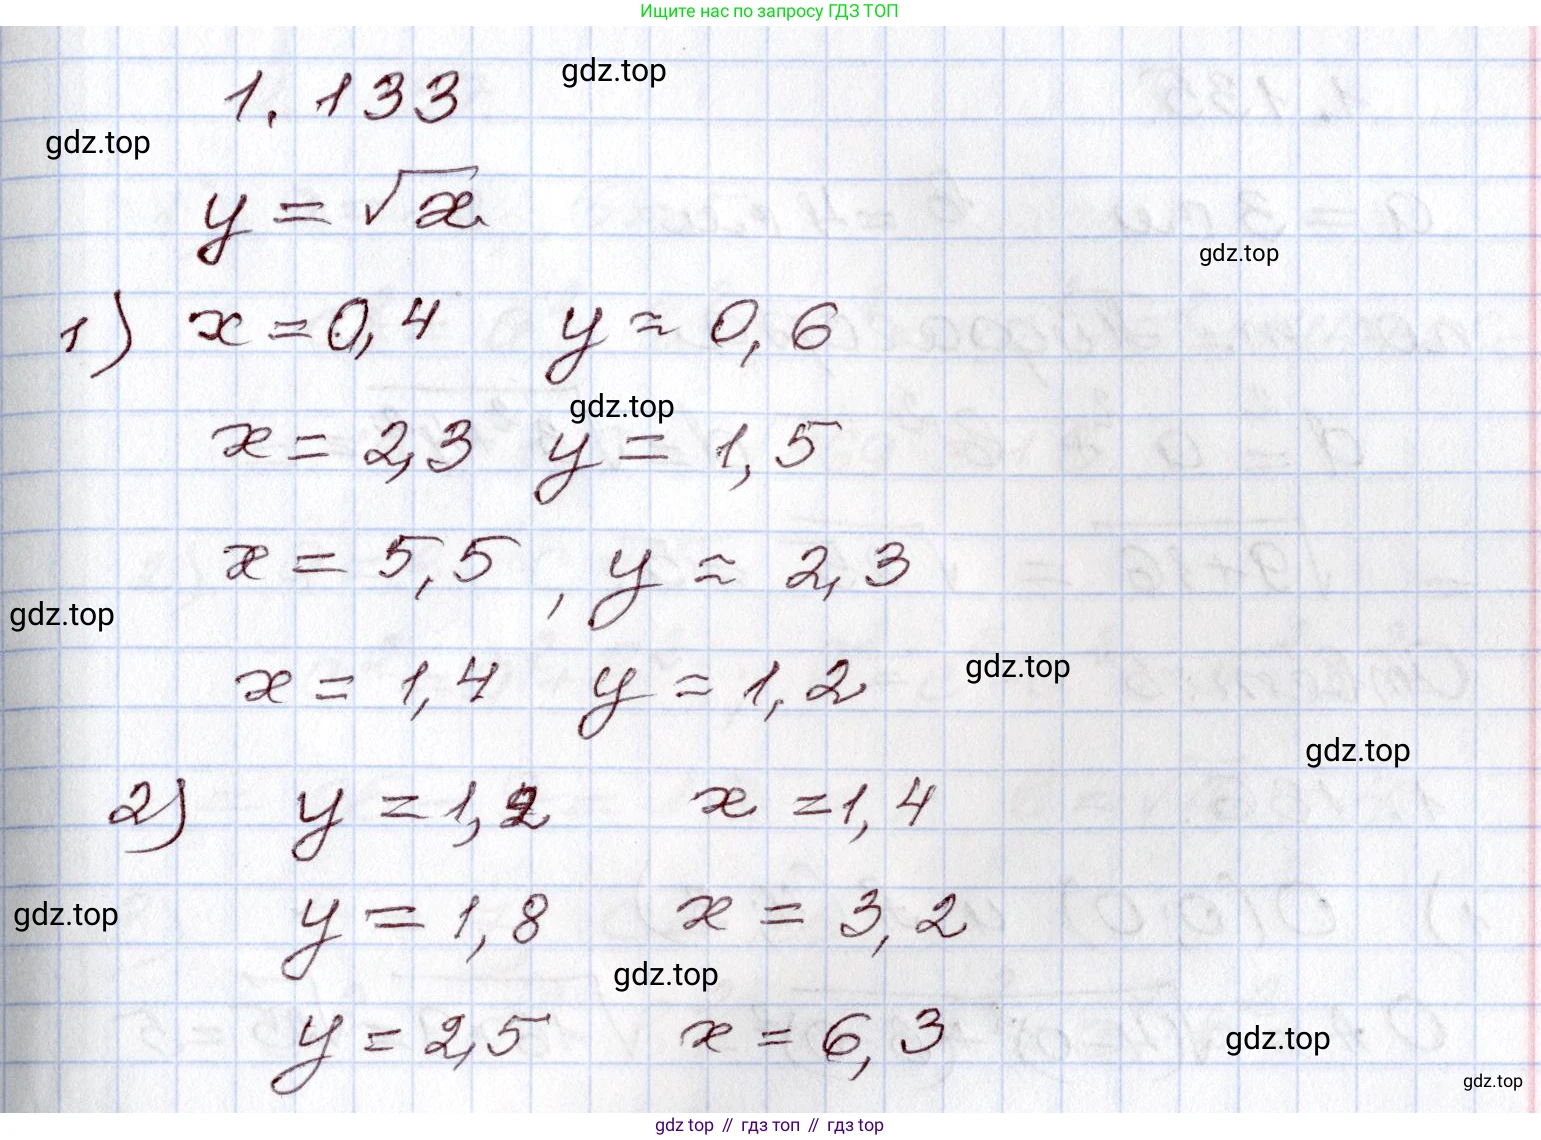 Ищите нас по запросу ГДЗ ТОП
1.133
gdz.top
gdz.top
y = √x
gdz.top
1) x = 0,4 y ≈ 0,6
gdz.top
x = 2,3 y = 1,5
x = 5,5, y ≈ 2,3
gdz.top
x = 1,4 y = 1,2
gdz.top
gdz.top
2) y = 1,2 x = 1,4
y = 1,8 x = 3,2
gdz.top
gdz.top
y = 2,5 x = 6,3
gdz.top
gdz.top
gdz top // гдз топ // гдз top